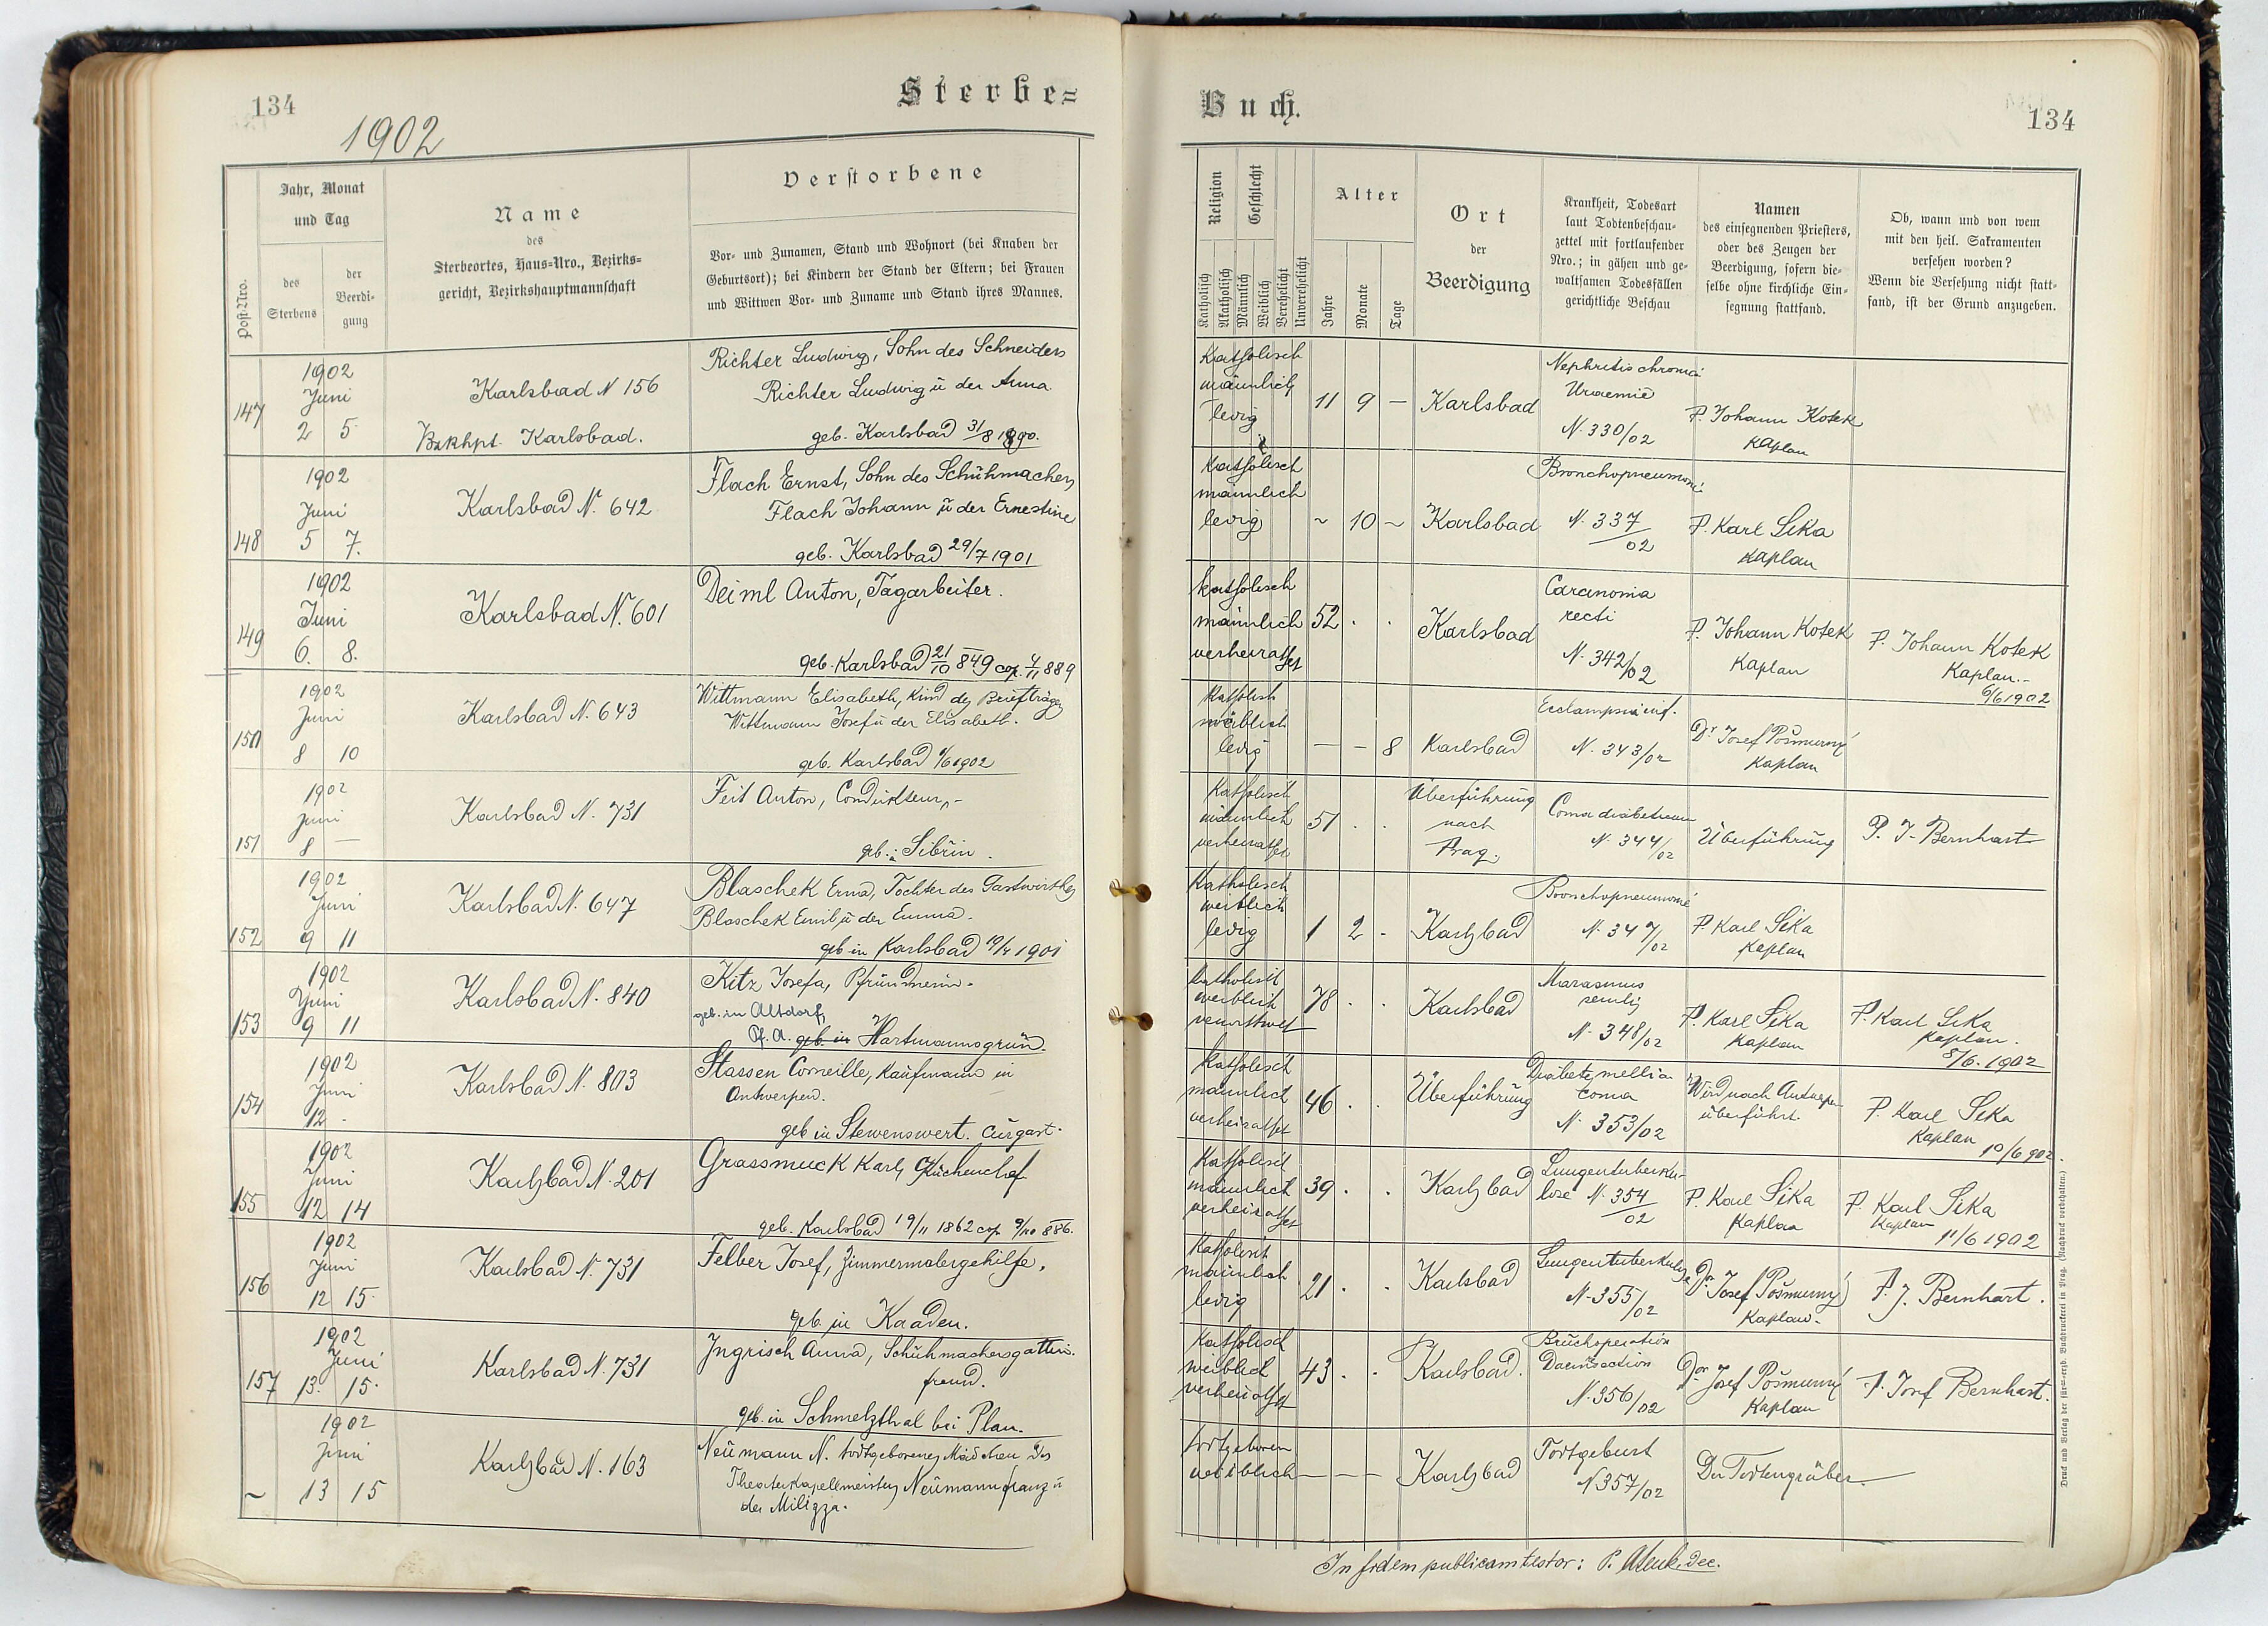 134
Sterbe=
1902
Post-Nro.
Jahr, Monat
und Tag
des
Sterbens
der
Beerdi-
gung
Name
des
Sterbeortes, Haus-Nro., Bezirks-
gericht, Bezirkshauptmannschaft
Verstorbene
Vor- und Zunamen, Stand und Wohnort (bei Knaben der
Geburtsort); bei Kindern der Stand der Eltern; bei Frauen
und Wittwen Vor- und Zuname und Stand ihres Mannes.
147
1902
Juni
2 5
Karlsbad N 156
Bzkhpt. Karlsbad.
Richter Ludwig, Sohn des Schneiders
Richter Ludwig ū der Anna
geb. Karlsbad 31/8 1890.
148
1902
Juni
5 7.
Karlsbad N. 642
Flach Ernst, Sohn des Schuhmachers
Flach Johann ū der Ernestine
geb. Karlsbad 29/7 1901
149
1902
Juni
6. 8.
Karlsbad N. 601
Deiml Anton, Tagarbeiter.
geb. Karlsbad 21/10 849 cop. 4/11 889
150
1902
Juni
8 10
Karlsbad N. 643
Wittmann Elisabeth, Kind des Briefträgers
Wittmann Josef ū der Elisabeth.
geb. Karlsbad 1/6 1902
151
1902
Juni
8 —
Karlsbad N. 731
Feit Anton, Condukteur,-
geb.: Sibřin.
152
1902
Juni
9 11
Karlsbad N. 647
Blaschek Erna, Tochter des Gastwirthes
Blaschek Emil, ū der Emma.
geb in Karlsbad 19/4 1901
153
1902
Juni
9 11
Karlsbad N. 840
Kitz Josefa, Pfründnerin.
geb. in Altdorf,
Pf. A. geb in Hartmannsgrün.
154
1902
Juni
12 -
Karlsbad N. 803
Stassen Corneille, Kaufmann in
Antwerpen.
geb in Stewenswert. Curgast.
155
1902
Juni
12 14
Karlsbad N. 201
Grassmuck Karl, Küchenchef
geb. Karlsbad 19/11 1862 cop 9/10 886.
156
1902
Juni
12 15
Karlsbad N. 731
Felber Josef, Zimmermalergehilfe.
geb in Kaaden.
157
1902
Juni
13. 15.
Karlsbad N. 731
Ingrisch Anna, Schuhmachersgattin.
fremd.
geb. in Schmelzthal bei Plan.
~
1902
Juni
13 15
Karlsbad N. 163
Neumann N. todtgeborenes Mädchen des
Theaterkapellmeisters Neumann Franz ū
der Milizza.
Buch.
134
Religion
Katholisch
Akatholisch
Geschlecht
Männlich
Weiblich
Verehelicht
Unverehelicht
Alter
Jahre
Monate
Tage
Ort
der
Beerdigung
Krankheit, Todesart
laut Todtenbeschau-
zettel mit fortlaufender
Nro.; in gähen und ge-
waltsamen Todesfällen
gerichtliche Beschau
Namen
des einsegnenden Priesters,
oder des Zeugen der
Beerdigung, sofern die-
selbe ohne kirchliche Ein-
segnung stattfand.
Ob, wann und von wem
mit den heil. Sakramenten
versehen worden?
Wenn die Versehung nicht statt-
fand, ist der Grund anzugeben.
Katholisch
männlich
ledig
11 9 —
Karlsbad
Nephritis chronica
Uraemie
N. 330/02
P. Johann Kotek
Kaplan
Katholisch
männlich
ledig
~ 10 ~
Karlsbad
Bronchopneumonie
N. 337/02
P. Karl Sika
Kaplan
Katholisch
männlich
verheirathet
52 . .
Karlsbad
Carcinoma
recti
N. 342/02
P. Johann Kotek
Kaplan
P. Johann Kotek
Kaplan.-
6/6 1902
Katholisch
weiblich
ledig
— — 8
Karlsbad
Ecclampsia inf.
N. 343/02
Dr. Josef Pošmurný
Kaplan
Katholisch
männlich
verheirathet
51 . .
Überführung
nach
Prag.
Coma diabeticum
N. 344/02
Überführung
P. J. Bernhart
Katholisch
weiblich
ledig
1 2 -
Karlsbad
Bronchopneumonie
N. 347/02
P. Karl Sika
Kaplan
Katholisch
weiblich
verwittwet
78 . .
Karlsbad
Marasmus
senilis
N. 348/02
P. Karl Sika
Kaplan
P. Karl Sika
Kaplan.
8/6. 1902
Katholisch
männlich
verheirathet
46 . .
Überführung
Diabetes mellia
coma
N. 353/02
Wird nach Antwerpen
überführt.
P. Karl Sika
Kaplan
10/6 902.
Katholisch
männlich
verheirathet
39 . .
Karlsbad
Lungentuberku-
lose N. 354/02
P. Karl Sika
Kaplan
P. Karl Sika
Kaplan
11/6 1902
Katholisch
männlich
ledig
21 . .
Karlsbad
Lungentuberkulose
N. 355/02
Dr. Josef Pošmurný
Kaplan.
P. J. Bernhart.
Katholisch
weiblich
verheirathet
43 . .
Karlsbad.
Bruchoperation
Darmsection
N. 356/02
Dr. Josef Pošmurný
Kaplan
P. Josef Bernhart.
todtgeboren
weiblich
— — —
Karlsbad
Todtgeburt
N 357/02
Der Todtengräber
In fidem publicam testor: P. dec.
Druck und Verlag der fürst-erzb. Buchdruckerei in Prag. (Nachdruck vorbehalten.)